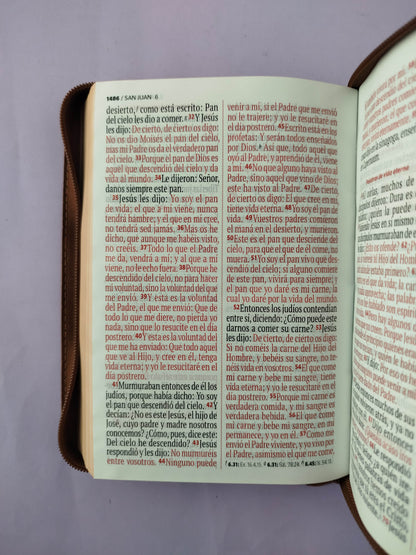 1486 / SAN JUAN 6
desierto, como está escrito: Pan
del cielo les dio a comer. 32Y Jesús
les dijo: De cierto, de cierto os digo:
No os dio Moisés el pan del cielo,
mas mi Padre os da el verdadero pan
del cielo. 33Porque el pan de Dios es
aquel que descendió del cielo y da
vida al mundo. 34Le dijeron: Señor,
danos siempre este pan.
35Jesús les dijo: Yo soy el pan
de vida; el que a mí viene, nunca
tendrá hambre; y el que en mí cree,
no tendrá sed jamás. 36Mas os
he dicho, que aunque me habéis visto,
no creéis. 37Todo lo que el Padre
me da, vendrá a mí; y al que a mí
viene, no le echo fuera. 38Porque
he descendido del cielo, no para hacer
mi voluntad, sino la voluntad del que
me envió. 39Y esta es la voluntad
del Padre, el que me envió: Que de
todo lo que me diere, no pierda yo
nada, sino que lo resucite en el día
postrero. 40Y esta es la voluntad del
que me ha enviado: Que todo aquel
que ve al Hijo, y cree en él, tenga
vida eterna; y yo le resucitaré en el
día postrero.
41Murmuraban entonces de él los
judíos, porque había dicho: Yo soy
el pan que descendió del cielo. 42Y
decían: ¿No es este Jesús, el hijo de
José, cuyo padre y madre nosotros
conocemos? ¿Cómo, pues, dice este:
Del cielo he descendido? 43Jesús
respondió y les dijo: No murmuréis
entre vosotros. 44Ninguno puede
venir a mí, si el Padre que me envió
no le trajere; y yo le resucitaré en
el día postrero. 45Escrito está en los
profetas: Y serán todos enseñados
por Dios. Así que, todo aquel que
oyó al Padre, y aprendió de él, viene
a mí. 46No que alguno haya visto al
Padre, sino aquel que vino de Dios;
este ha visto al Padre. 47De cierto,
de cierto os digo: El que cree en mí,
tiene vida eterna. 48Yo soy el pan de
vida. 49Vuestros padres comieron
el maná en el desierto, y murieron.
50Este es el pan que desciende del
cielo, para que el que de él come, no
muera. 51Yo soy el pan vivo que
descendió del cielo; si alguno comiere
de este pan, vivirá para siempre; y el
pan que yo daré es mi carne, la
cual yo daré por la vida del mundo.
52Entonces los judíos contendían
entre sí, diciendo: ¿Cómo puede este
darnos a comer su carne? 53Jesús
les dijo: De cierto, de cierto os digo:
Si no coméis la carne del Hijo del
Hombre, y bebéis su sangre, no te-
néis vida en vosotros. 54El que come
mi carne y bebe mi sangre, tiene
vida eterna; y yo le resucitaré en el
día postrero. 55Porque mi carne es
verdadera comida, y mi sangre es
verdadera bebida. 56El que come mi
carne y bebe mi sangre, en mí
permanece, y yo en él. 57Como me
envió el Padre viviente, y yo vivo por
el Padre, asimismo el que me come,
6.31: Éx. 16.4,15. 6.31: Sal. 78.24. 6.45: Is. 54.13.